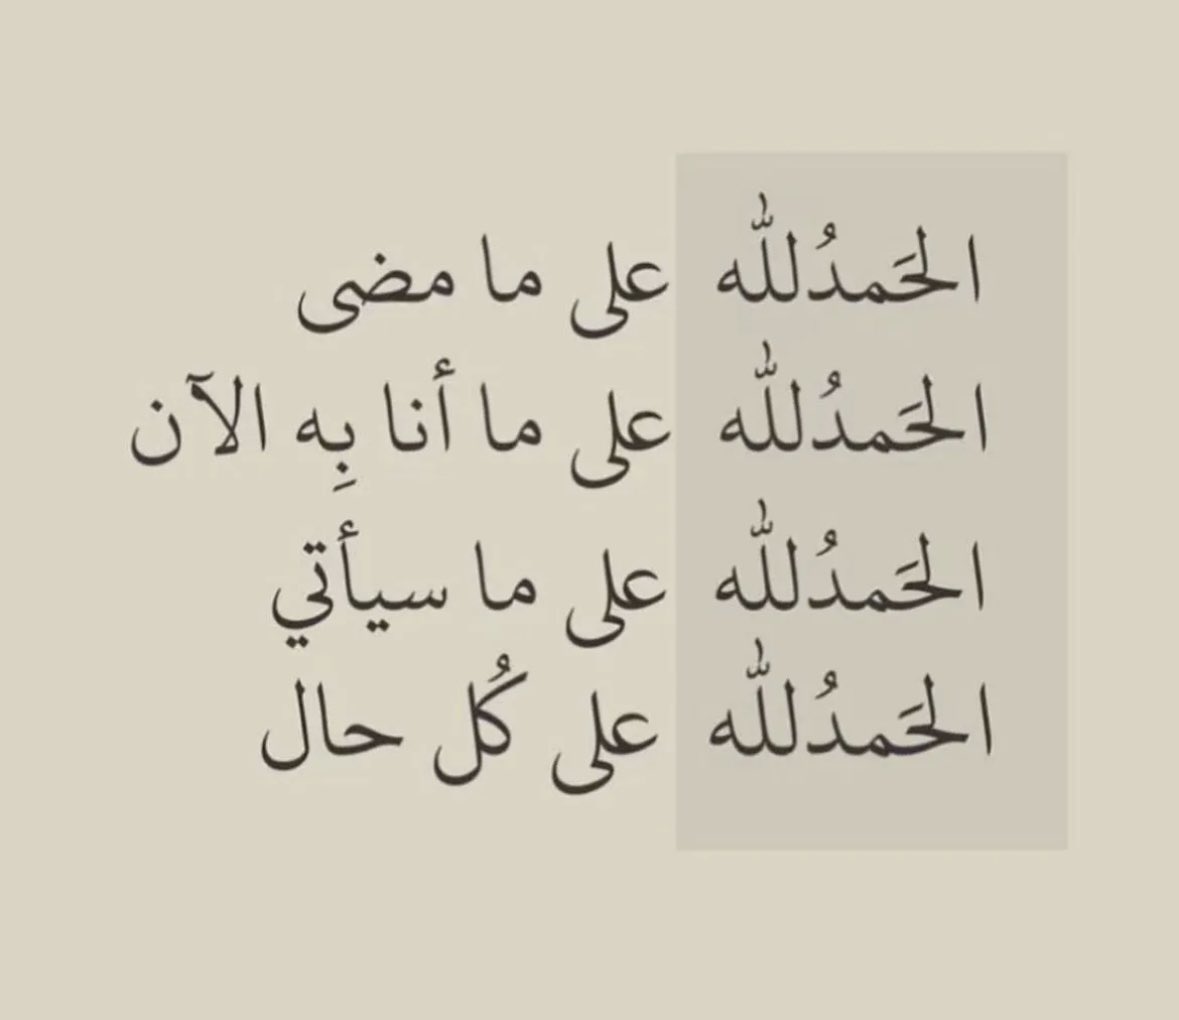 الحَمدُلله على ما مضى
الحَمدُلله على ما أنا بِه الآن
الحَمدُلله على ما سيأتي
الحَمدُلله على كُل حال